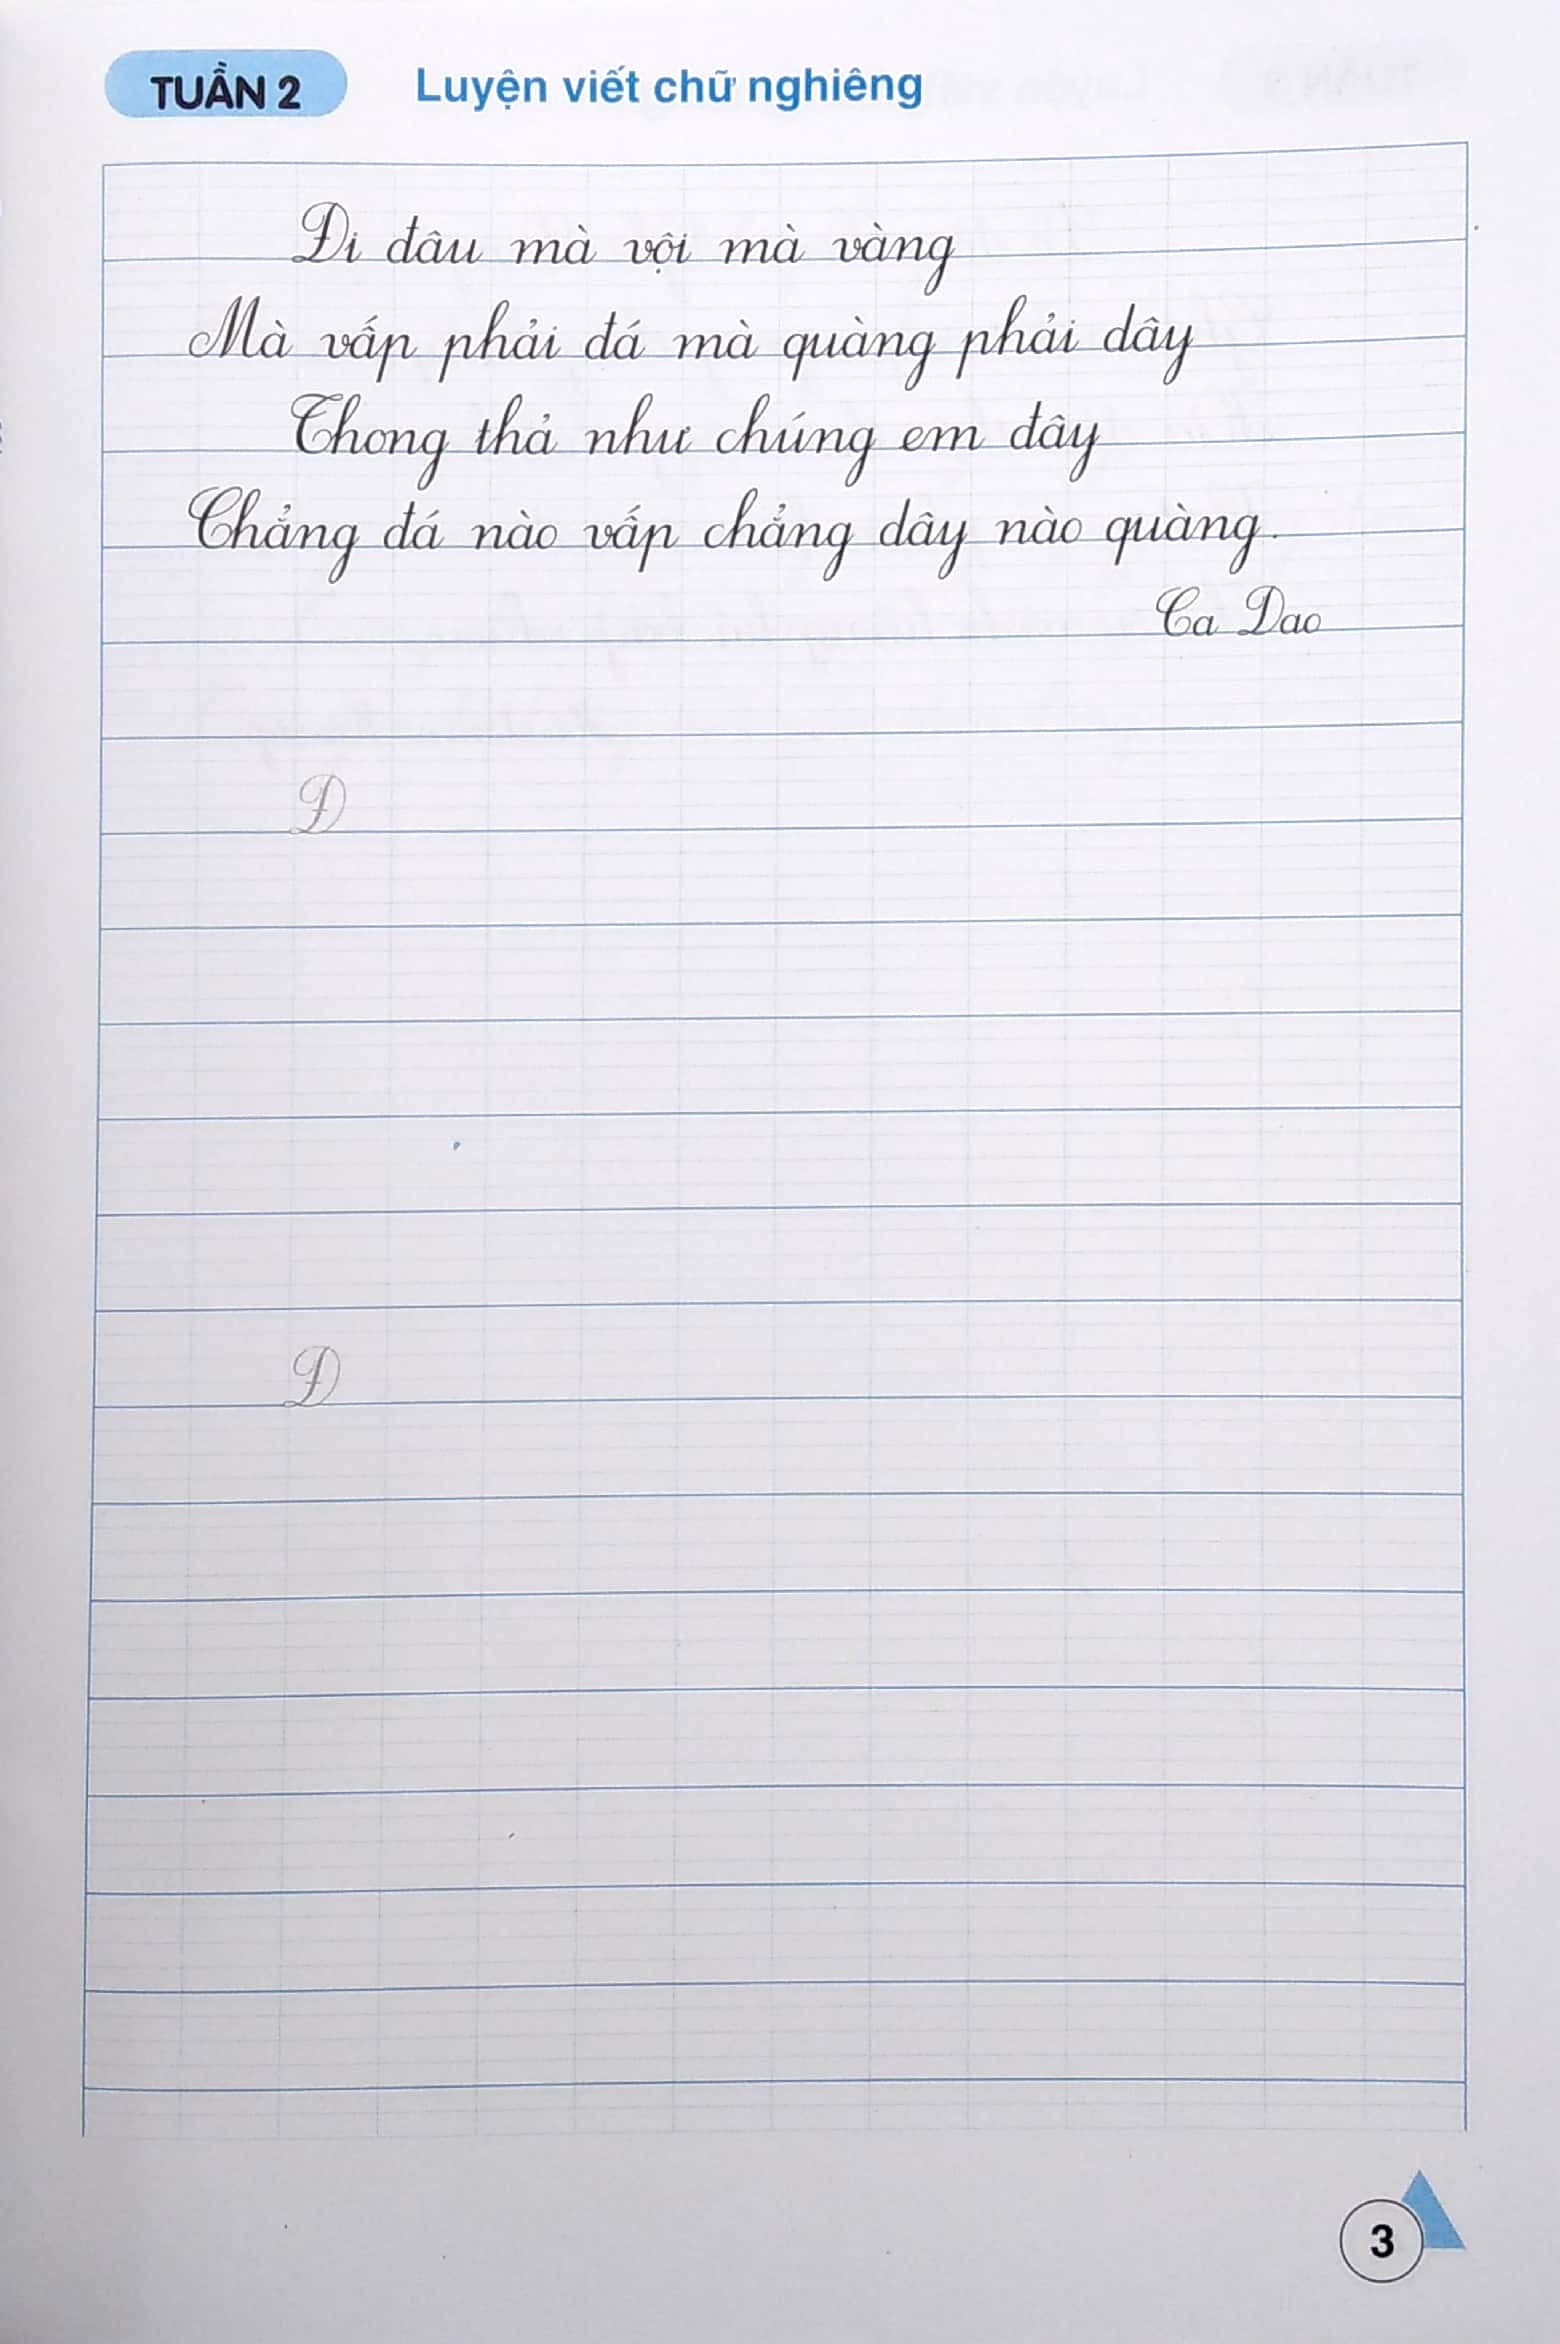 TUẦN 2 Luyện viết chữ nghiêng
Đi đâu mà vội mà vàng
Mà vấp phải đá mà quàng phải dây
Thong thả như chúng em đây
Chẳng đá nào vấp chẳng dây nào quàng.
Ca Dao
Đ
Đ
3